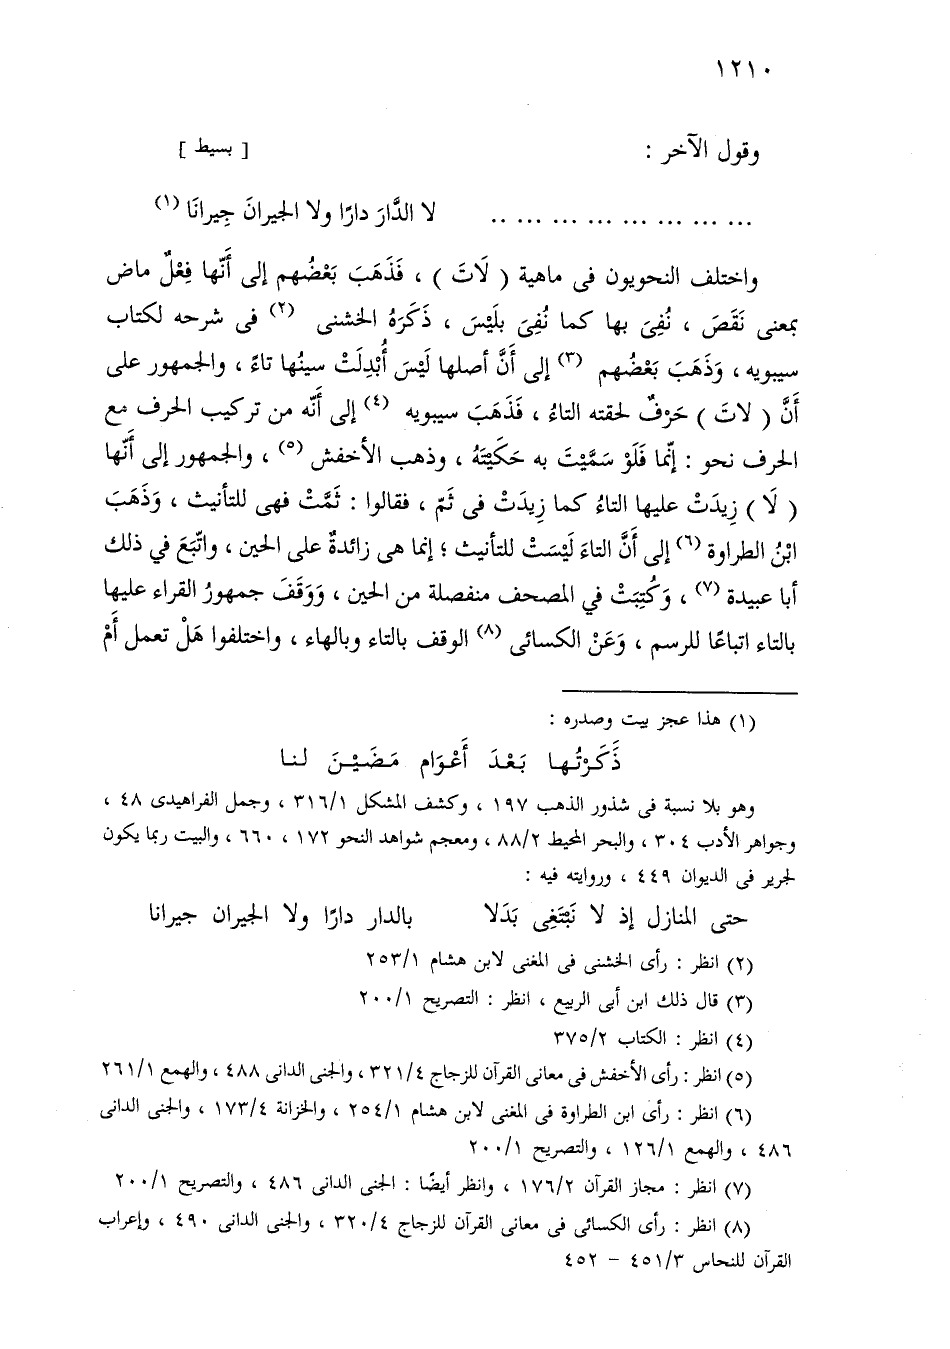 ١٢١٠
وقول الآخر : [ بسيط ]
... ... ... ... ... ... ... .. لا الدَّارَ دارًا ولا الجيرانَ جِيرانَا (١)
واختلف النحويون فى ماهية ( لَاتَ ) ، فَذَهَبَ بَعْضُهم إلى أَنَّها فِعْلٌ ماض
بمعنى نَقَصَ ، نُفِىَ بها كما نُفِىَ بلَيْسَ ، ذَكَرَهُ الخشنى (٢) فى شرحه لكتاب
سيبويه ، وَذَهَبَ بَعْضُهم (٣) إلى أَنَّ أصلها لَيْسَ أُبْدِلَتْ سينُها تاءً ، والجمهور على
أَنَّ ( لاتَ ) حَرْفٌ لحقته التاءُ ، فَذَهَبَ سيبويه (٤) إلى أَنَّه من تركيب الحرف مع
الحرف نحو : إنّما فَلَوْ سَمَّيْتَ به حَكَيْتَهُ ، وذهب الأخفش (٥) ، والجمهور إلى أَنَّها
( لَا ) زِيدَتْ عليها التاءُ كما زِيدَتْ فى ثَمّ ، فقالوا : ثَمَّتْ فهى للتأنيث ، وَذَهَبَ
ابْنُ الطراوة (٦) إلى أَنَّ التاءَ لَيْسَتْ للتأنيث ؛ إنما هى زائدةٌ على الحين ، واتّبَعَ في ذلك
أبا عبيدة (٧) ، وَكُتِبَتْ في المصحف منفصلة من الحين ، وَوَقَفَ جمهورُ القراء عليها
بالتاء اتباعًا للرسم ، وَعَنْ الكسائى (٨) الوقف بالتاء وبالهاء ، واختلفوا هَلْ تعمل أَمْ
(١) هذا عجز بيت وصدره :
ذَكَرْتُها بَعْدَ أَعْوام مَضَيْنَ لنا
وهو بلا نسبة فى شذور الذهب ١٩٧ ، وكشف المشكل ٣١٦/١ ، وجمل الفراهيدى ٤٨ ،
وجواهر الأدب ٣٠٤ ، والبحر المحيط ٨٨/٢ ، ومعجم شواهد النحو ١٧٢ ، ٦٦٠ ، والبيت ربما يكون
لجرير فى الديوان ٤٤٩ ، وروايته فيه :
حتى المنازل إذ لا نَبْتَغِى بَدَلا بالدار دارًا ولا الجيران جيرانا
(٢) انظر : رأى الخشنى فى المغنى لابن هشام ٢٥٣/١
(٣) قال ذلك ابن أبى الربيع ، انظر : التصريح ٢٠٠/١
(٤) انظر : الكتاب ٣٧٥/٢
(٥) انظر : رأى الأخفش فى معانى القرآن للزجاج ٣٢١/٤ ، والجنى الدانى ٤٨٨ ، والهمع ٢٦١/١
(٦) انظر : رأى ابن الطراوة فى المغنى لابن هشام ٢٥٤/١ ، والخزانة ١٧٣/٤ ، والجنى الدانى
٤٨٦ ، والهمع ١٢٦/١ ، والتصريح ٢٠٠/١
(٧) انظر : مجاز القرآن ١٧٦/٢ ، وانظر أيضًا : الجنى الدانى ٤٨٦ ، والتصريح ٢٠٠/١
(٨) انظر : رأى الكسائى فى معانى القرآن للزجاج ٣٢٠/٤ ، والجنى الدانى ٤٩٠ ، وإعراب
القرآن للنحاس ٤٥١/٣ – ٤٥٢